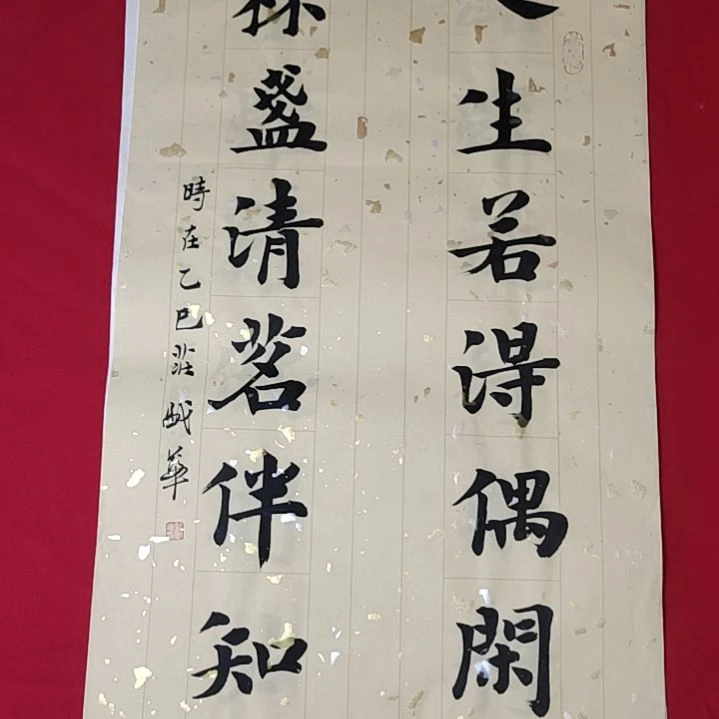 生若得偶閑
盞清茗伴知
時在乙巳莊
華